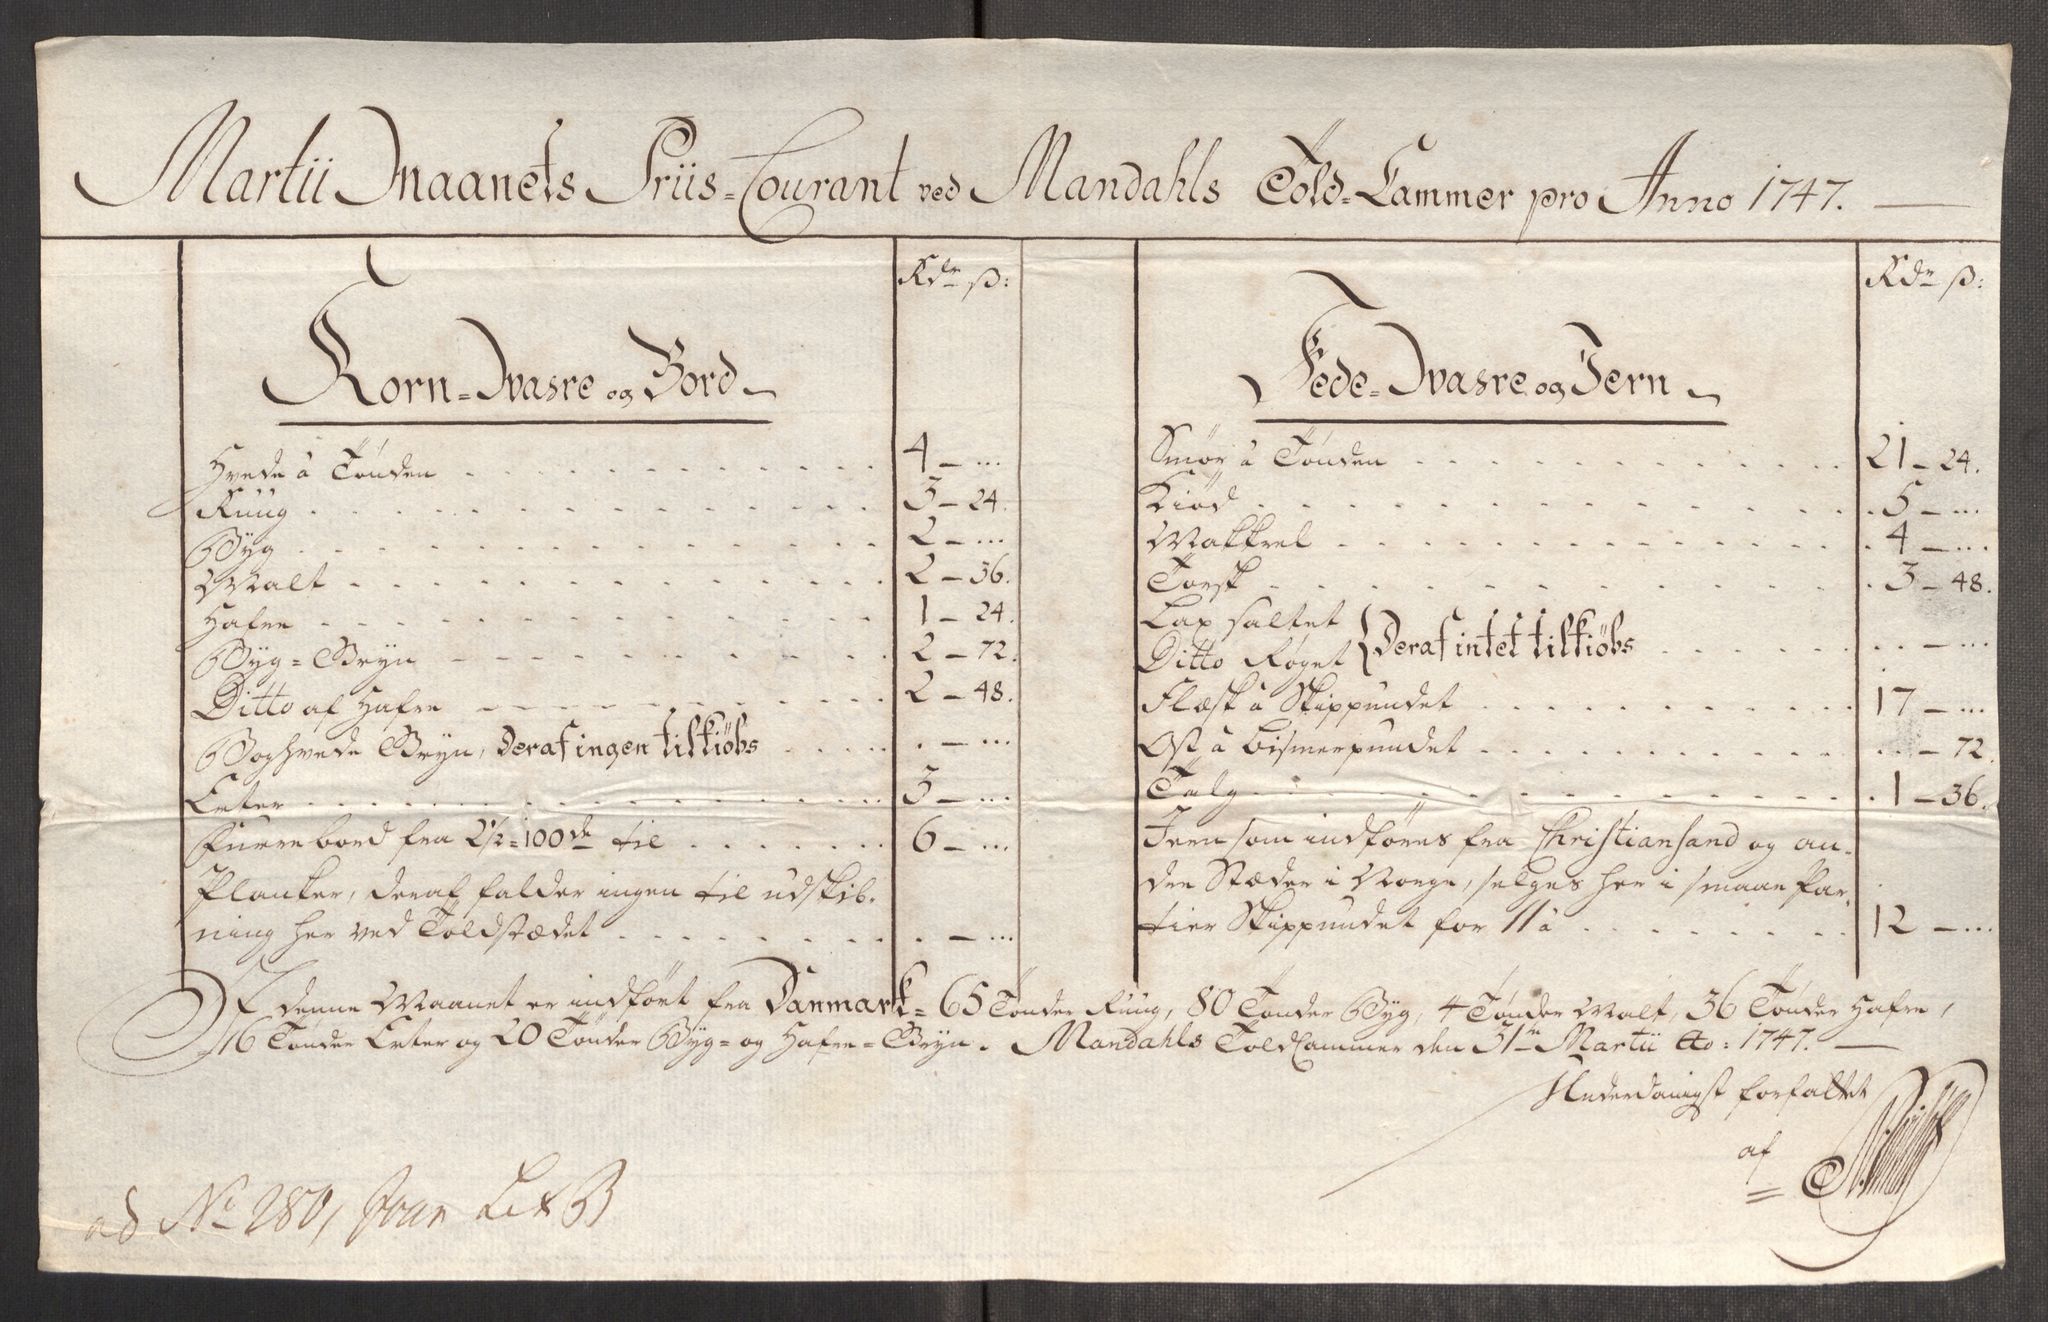 Martii Maanets Priis=Courant ved Mandahls Told=Cammer pro Anno 1747.
Rdr ß:
Korn=Wahre og Bord
Hvede à Tønden 4 - ...
Ruug 3 - 24.
Byg 2 - ...
Malt 2 - 36.
Hafre 1 - 24.
Byg=Gryn 2 - 72.
Ditto af Hafre 2 - 48.
Boghvede Gryn, Deraf ingen tilkiøbs . - ...
Erter 3 - ...
Furre bord fra 2½=100de til 6 - ...
Planker, deraf falder ingen til udskib-
ning her ved Toldstædet . - ...
Rdr ß:
Fede=Wahre og Jern
Smør à Tønden 21 - 24.
Kiød 5 - ...
Makkrel 4 - ...
Torsk 3 - 48.
Lax saltet
Ditto Røget } Deraf intet tilkiøbs . - ...
Flæsk à Skippundet 17 - ...
Ost à Bismerpundet . - 72.
Talg 1 - 36.
Jern som indføres fra Christiansand og an-
dre Stæder i Norge, selges her i smaae Par-
tier Skippundet for 11 à 12 - ...
I denne Maanet er indført fra Danmark=65 Tønder Ruug, 80 Tønder Byg, 4 Tønder Malt, 36 Tønder Hafre,
16 Tønder Erter og 20 Tønder Byg= og Hafre=Gryn. Mandahls ToldCammer den 31te Martii Ao: 1747.
Underdanigst forfattet
af
ad No 280, Lit B